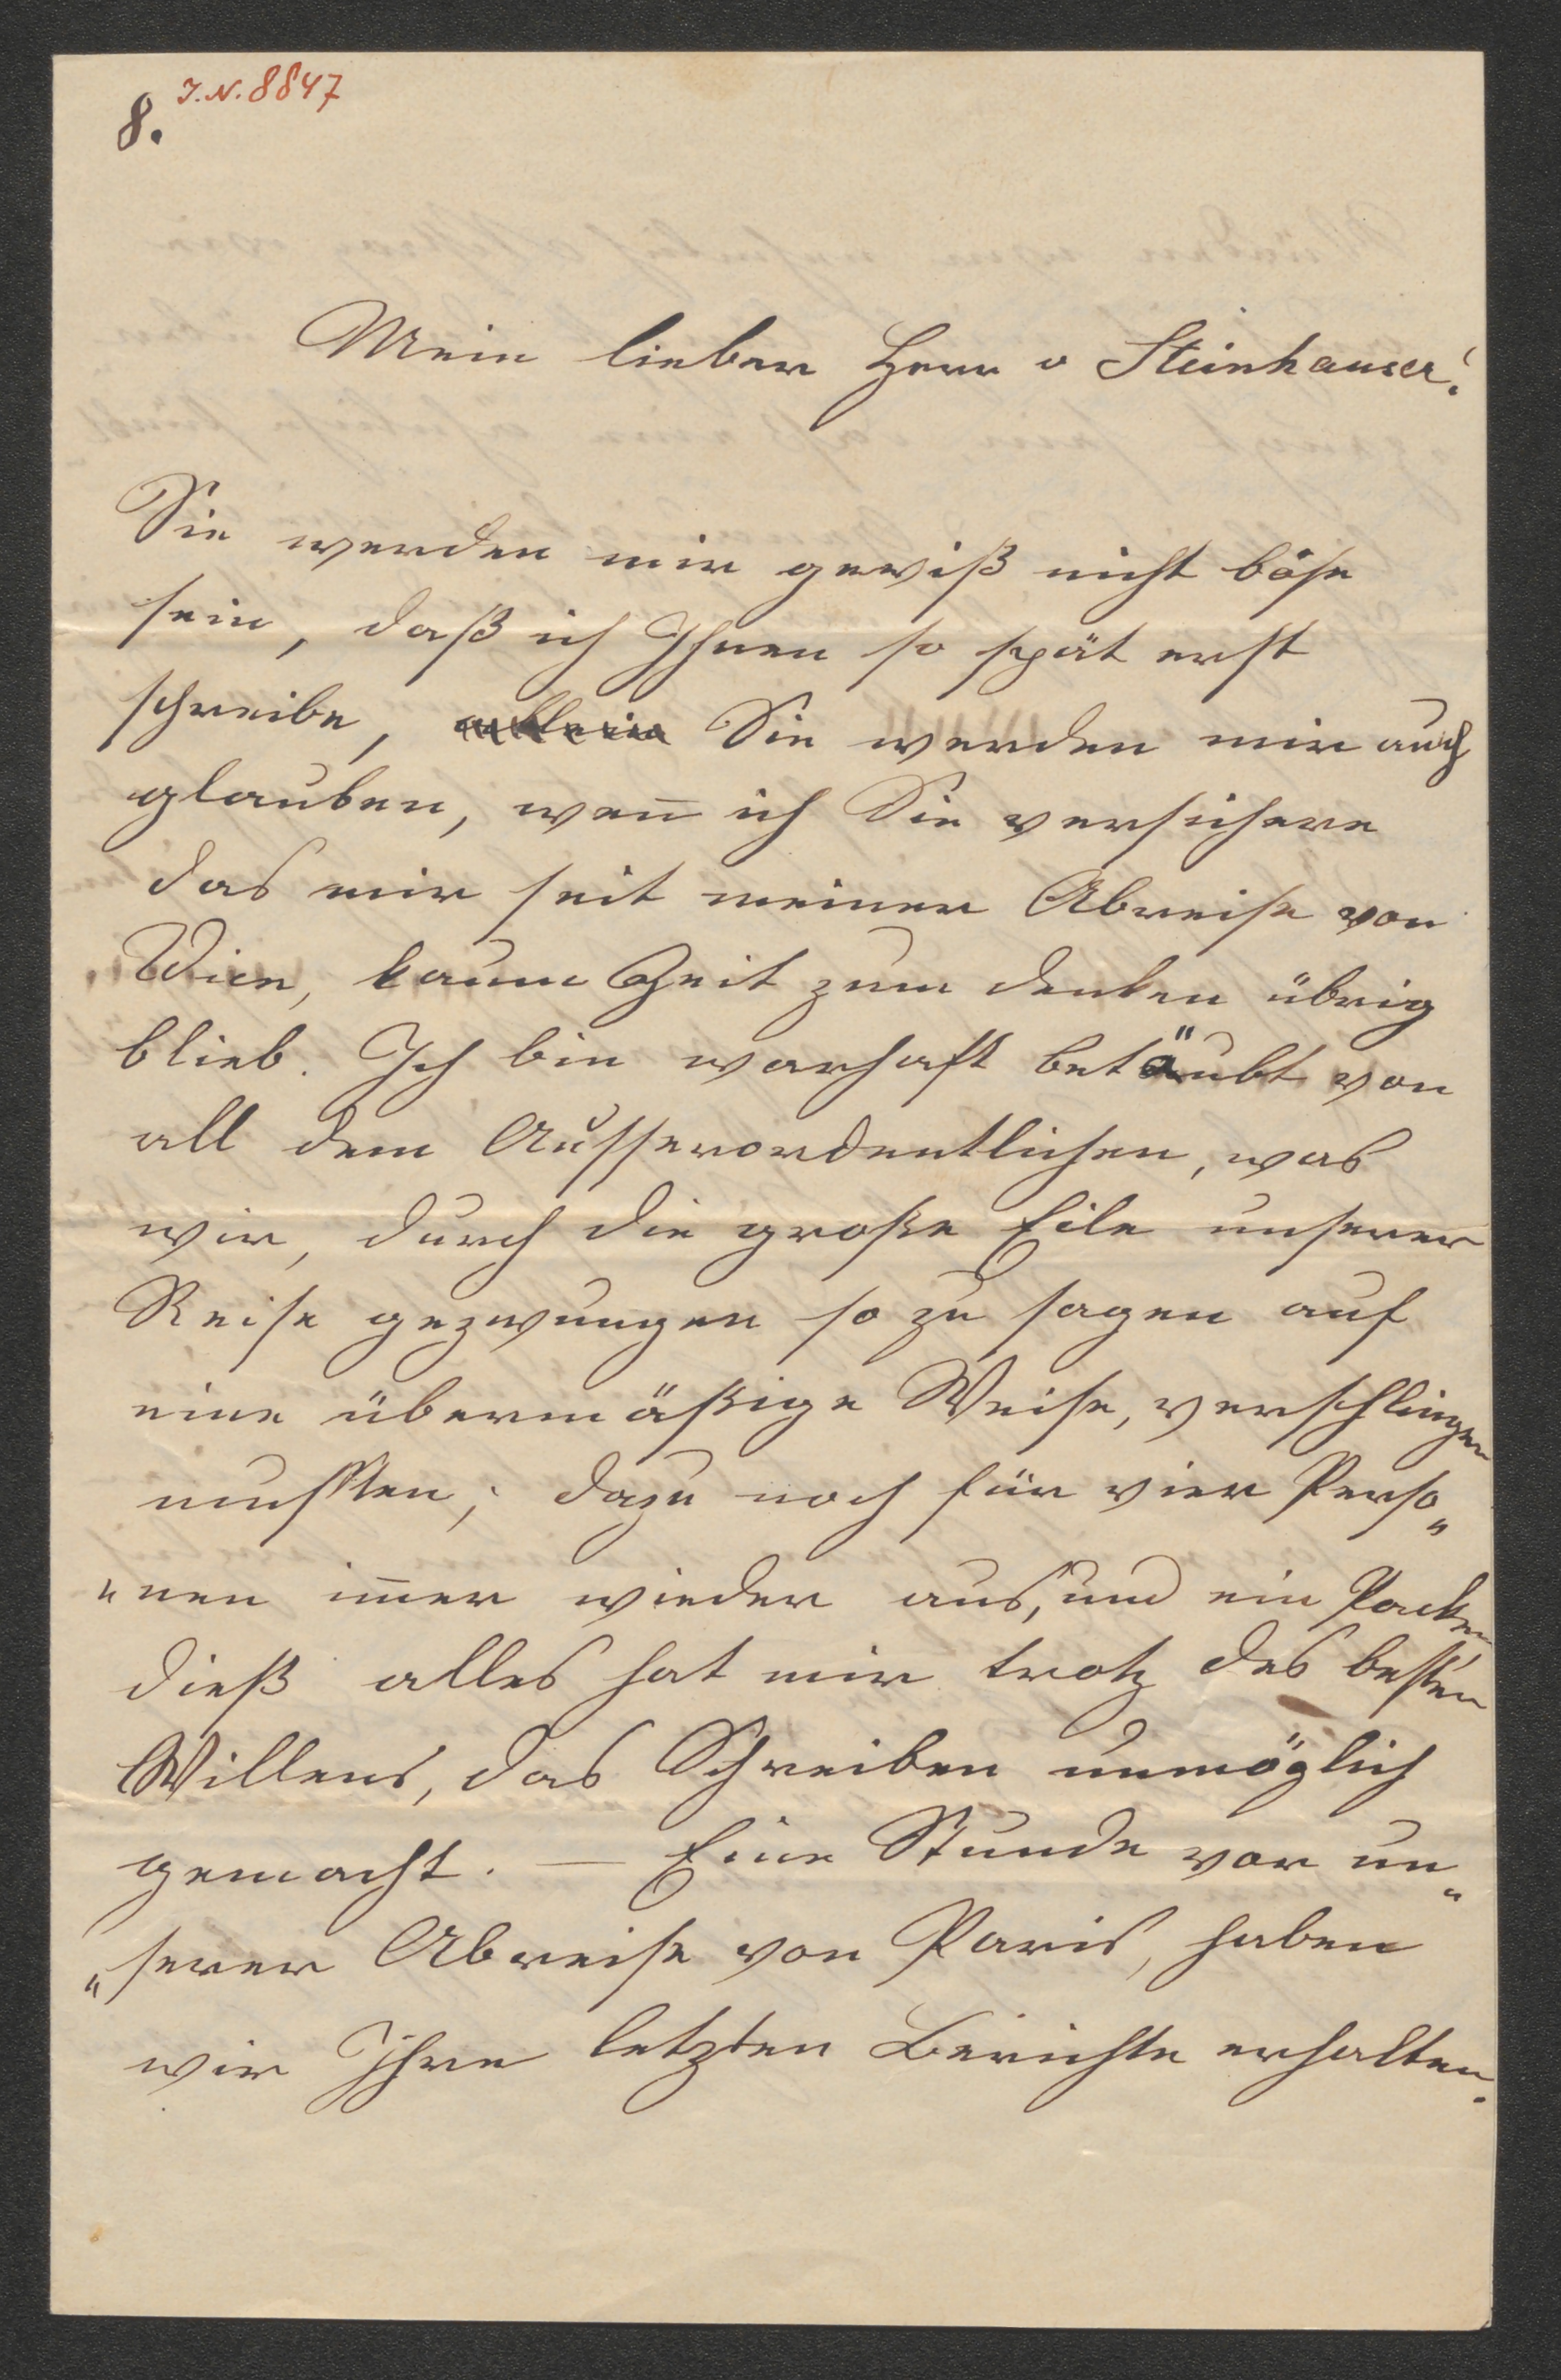 I.N. 8847
8.
Mein lieber Herr v Steinhauser!
Sie werden mir gewiß nicht böse
sein, daß ich Ihnen so spät erst
schreibe, allein Sie werden mir auch
glauben, wen̄ ich Sie versichere
das mir seit meiner Abreise von
Wien, kaum Zeit zum denken übrig
blieb. Ich bin warhaft betäubt von
all dem Ausserordentlichen, was
wir, durch die große Eile unserer
Reise gezwungen so zu sagen auf
eine übermäßige Weise, verschlingen
mussten; dazu noch für vier Perso„
„nen im̄er wieder aus, und ein Packen
dieß alles hat mir trotz des besten
Willens, das Schreiben unmöglich
gemacht. — Eine Stunde vor un„
„serer Abreise von Paris, haben
wir Ihre letzten Berichte erhalten.